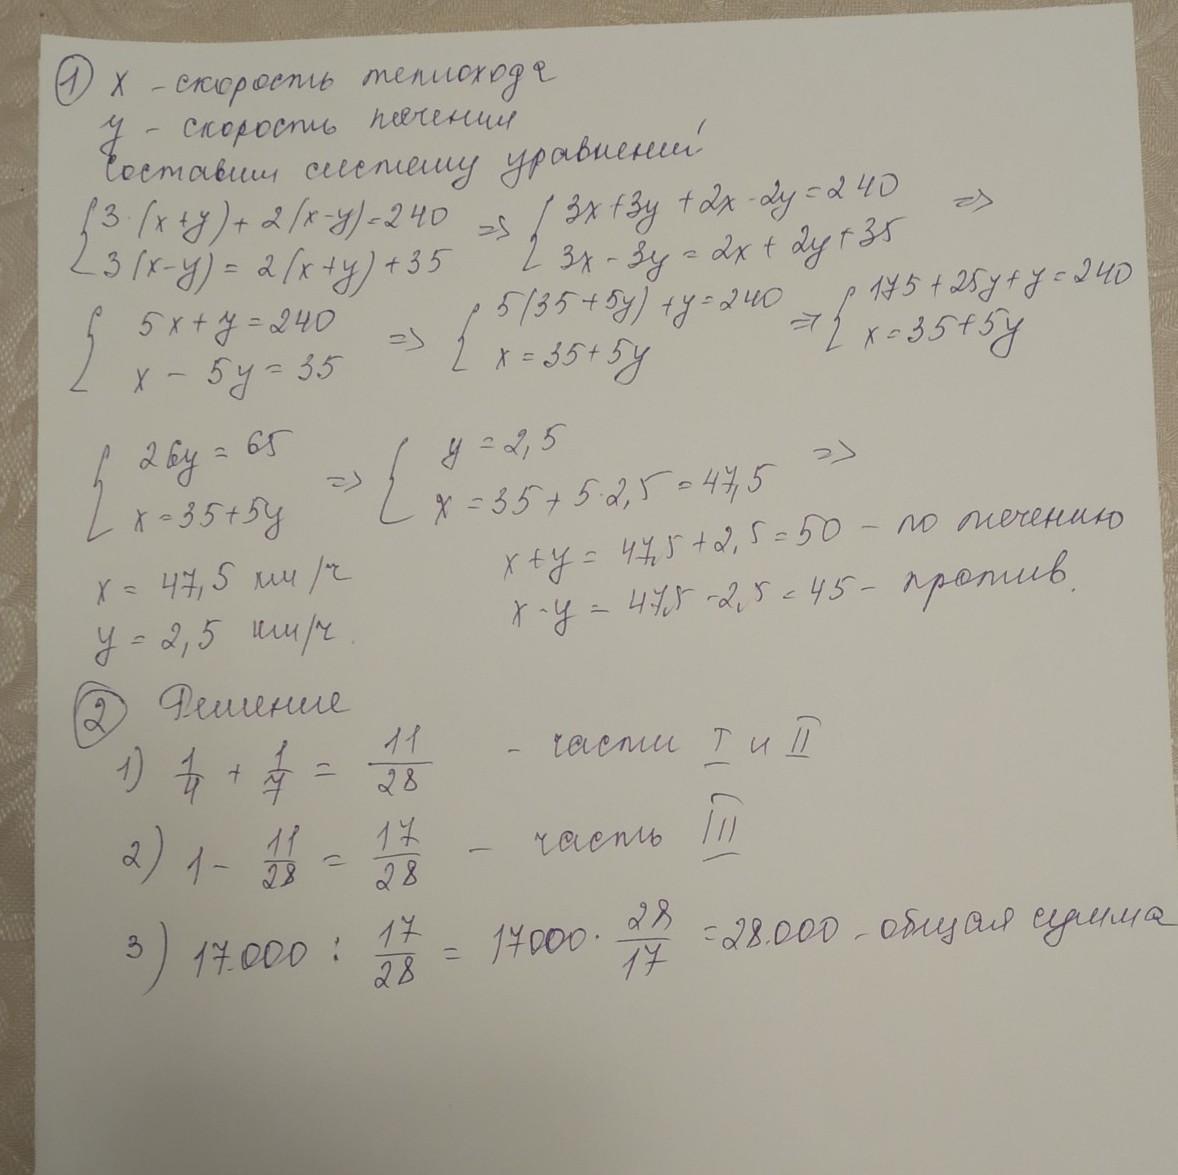 ① x – скорость теплохода
y – скорость течения
Составим систему уравнений
{ 3·(x+y)+2(x-y)=240 => { 3x+3y+2x-2y=240 =>
{ 3(x-y)=2(x+y)+35 { 3x-3y=2x+2y+35
{ 5x+y=240 => { 5(35+5y)+y=240 => { 175+25y+y=240
{ x-5y=35 { x=35+5y { x=35+5y
{ 26y=65 => { y=2,5 =>
{ x=35+5y { x=35+5·2,5=47,5
x=47,5 км/ч x+y=47,5+2,5=50 – по течению
y=2,5 км/ч. x-y=47,5-2,5=45 – против.
② Решение
1) 1/4 + 1/7 = 11/28 – части I и II
2) 1 - 11/28 = 17/28 – часть III
3) 17.000 : 17/28 = 17000 · 28/17 = 28.000 – общая сумма